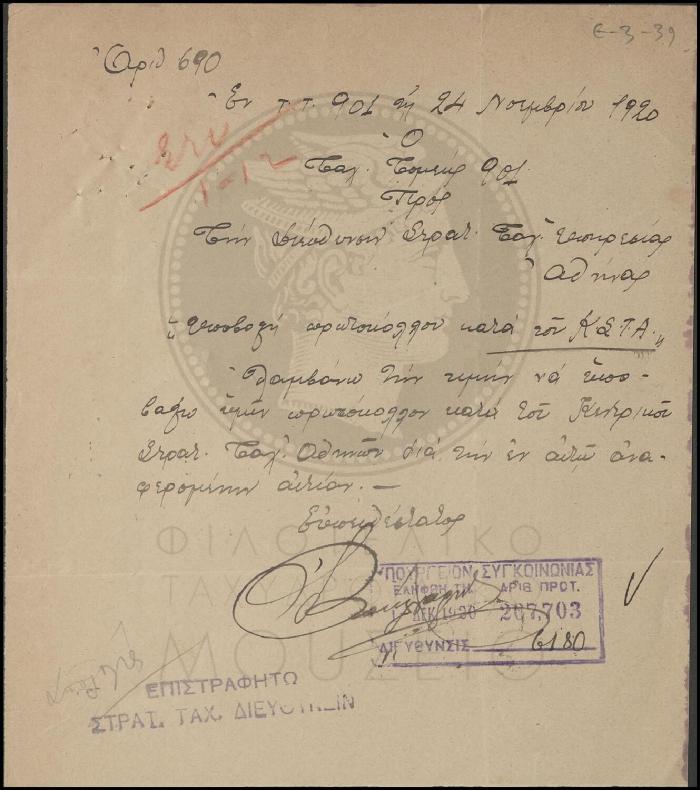 Ε-3-39
Ἀριθ 690
Ἐν Τ.Τ. 901 τῇ 24 Νοεμβρίου 1920
1-12
Ὁ
Ταχ. Τομεὺς 901
Πρὸς
Τὴν Διεύθυνσιν Στρατ. Ταχ. Ὑπηρεσίας
Ἀθήνας
"Ὑποβολὴ πρωτοκόλλου κατὰ τοῦ Κ.Σ.Τ.Α."
Λαμβάνω τὴν τιμὴν νὰ ὑπο-
βάλω ὑμῖν πρωτόκολλον κατὰ τοῦ Κεντρικοῦ
Στρατ. Ταχ. Ἀθηνῶν διὰ τὴν ἐν αὐτῷ ἀνα-
φερομένην αἰτίαν.—
Εὐπειθέστατος
ΦΙΛΟΤΕΛΙΚΟ
ΠΟΥΡΓΕΙΟΝ ΣΥΓΚΟΙΝΩΝΙΑΣ
ΕΛΗΦΘΗ ΤΗ ΑΡΙΘ ΠΡΩΤ.
ΔΕΚ 1920 207,703
ΔΙΕΥΘΥΝΣΙΣ 6180
ΜΟΥΣΕΙΟ
ΕΠΙΣΤΡΑΦΗΤΩ
ΣΤΡΑΤ. ΤΑΧ. ΔΙΕΥΘΥΝΣΙΝ